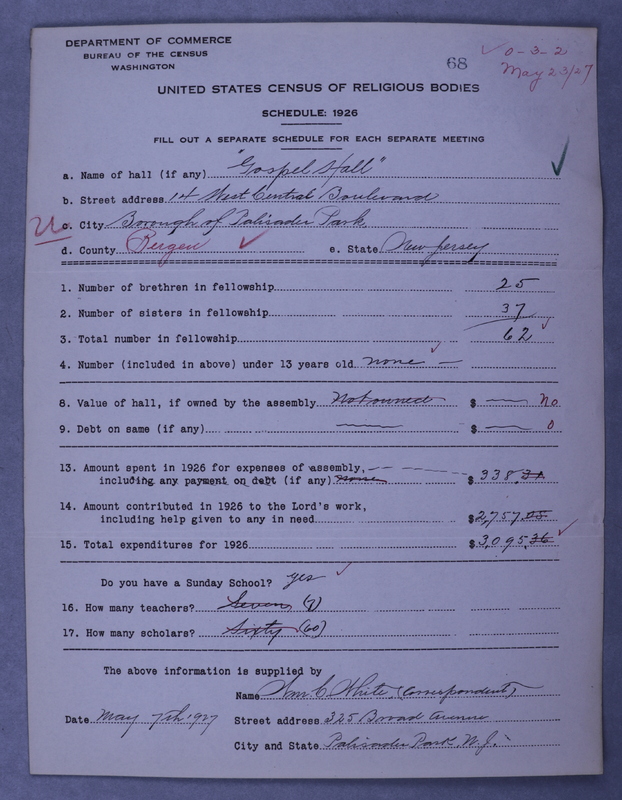 DEPARTMENT OF COMMERCE
BUREAU OF THE CENSUS
WASHINGTON
68
0-3-2
May 23/27
UNITED STATES CENSUS OF RELIGIOUS BODIES
SCHEDULE: 1926
FILL OUT A SEPARATE SCHEDULE FOR EACH SEPARATE MEETING
a. Name of hall (if any) "Gospel Hall"
b. Street address 14 West Central Boulevard
c. City Borough of Palisades Park
d. County Bergen e. State New Jersey
1. Number of brethren in fellowship 25
2. Number of sisters in fellowship 37
3. Total number in fellowship 62
4. Number (included in above) under 13 years old none
8. Value of hall, if owned by the assembly Not owned $ No
9. Debt on same (if any) $ 0
13. Amount spent in 1926 for expenses of assembly,
including any payment on debt (if any) none $ 338.31
14. Amount contributed in 1926 to the Lord's work,
including help given to any in need $2,757.05
15. Total expenditures for 1926 $3,095.36
Do you have a Sunday School? yes
16. How many teachers? Seven (7)
17. How many scholars? Sixty (60)
The above information is supplied by
Name Wm C White, (Correspondent)
Date May 7th 1927 Street address 325 Broad Avenue
City and State Palisades Park, N.J.